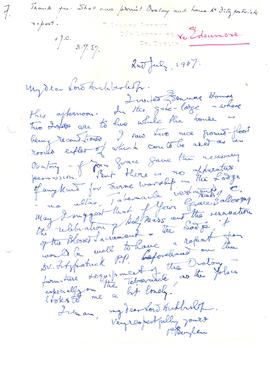 7. Thank you. I shall now permit Oratory and have Dr. Fitzpatrick's
report.
3.7.57.
re Edenmore
2nd July, 1957.
My dear Lord Archbishop,
I visited Edenmore House
this afternoon. In the gate-lodge - where
two are to live while the house is
being reconditioned I saw two nice ground-floor
rooms either of which could be used as an
Oratory - if your Grace gave the necessary
permission. But there is no
of any kind for Divine worship in the Lodge
- no altar, Tabernacle, vestments etc.
May I suggest that if Your Grace allows
the celebration of Mass and the reservation
of the Blessed Sacrament in the Lodge it
would be well to have a report from
Dr. Fitzpatrick P.P. beforehand on the
furniture and equipment of the Oratory -
especially on the Tabernacle as the place
looks to me a bit lonely!
I am, my dear Lord Archbishop,
Very respectfully yours